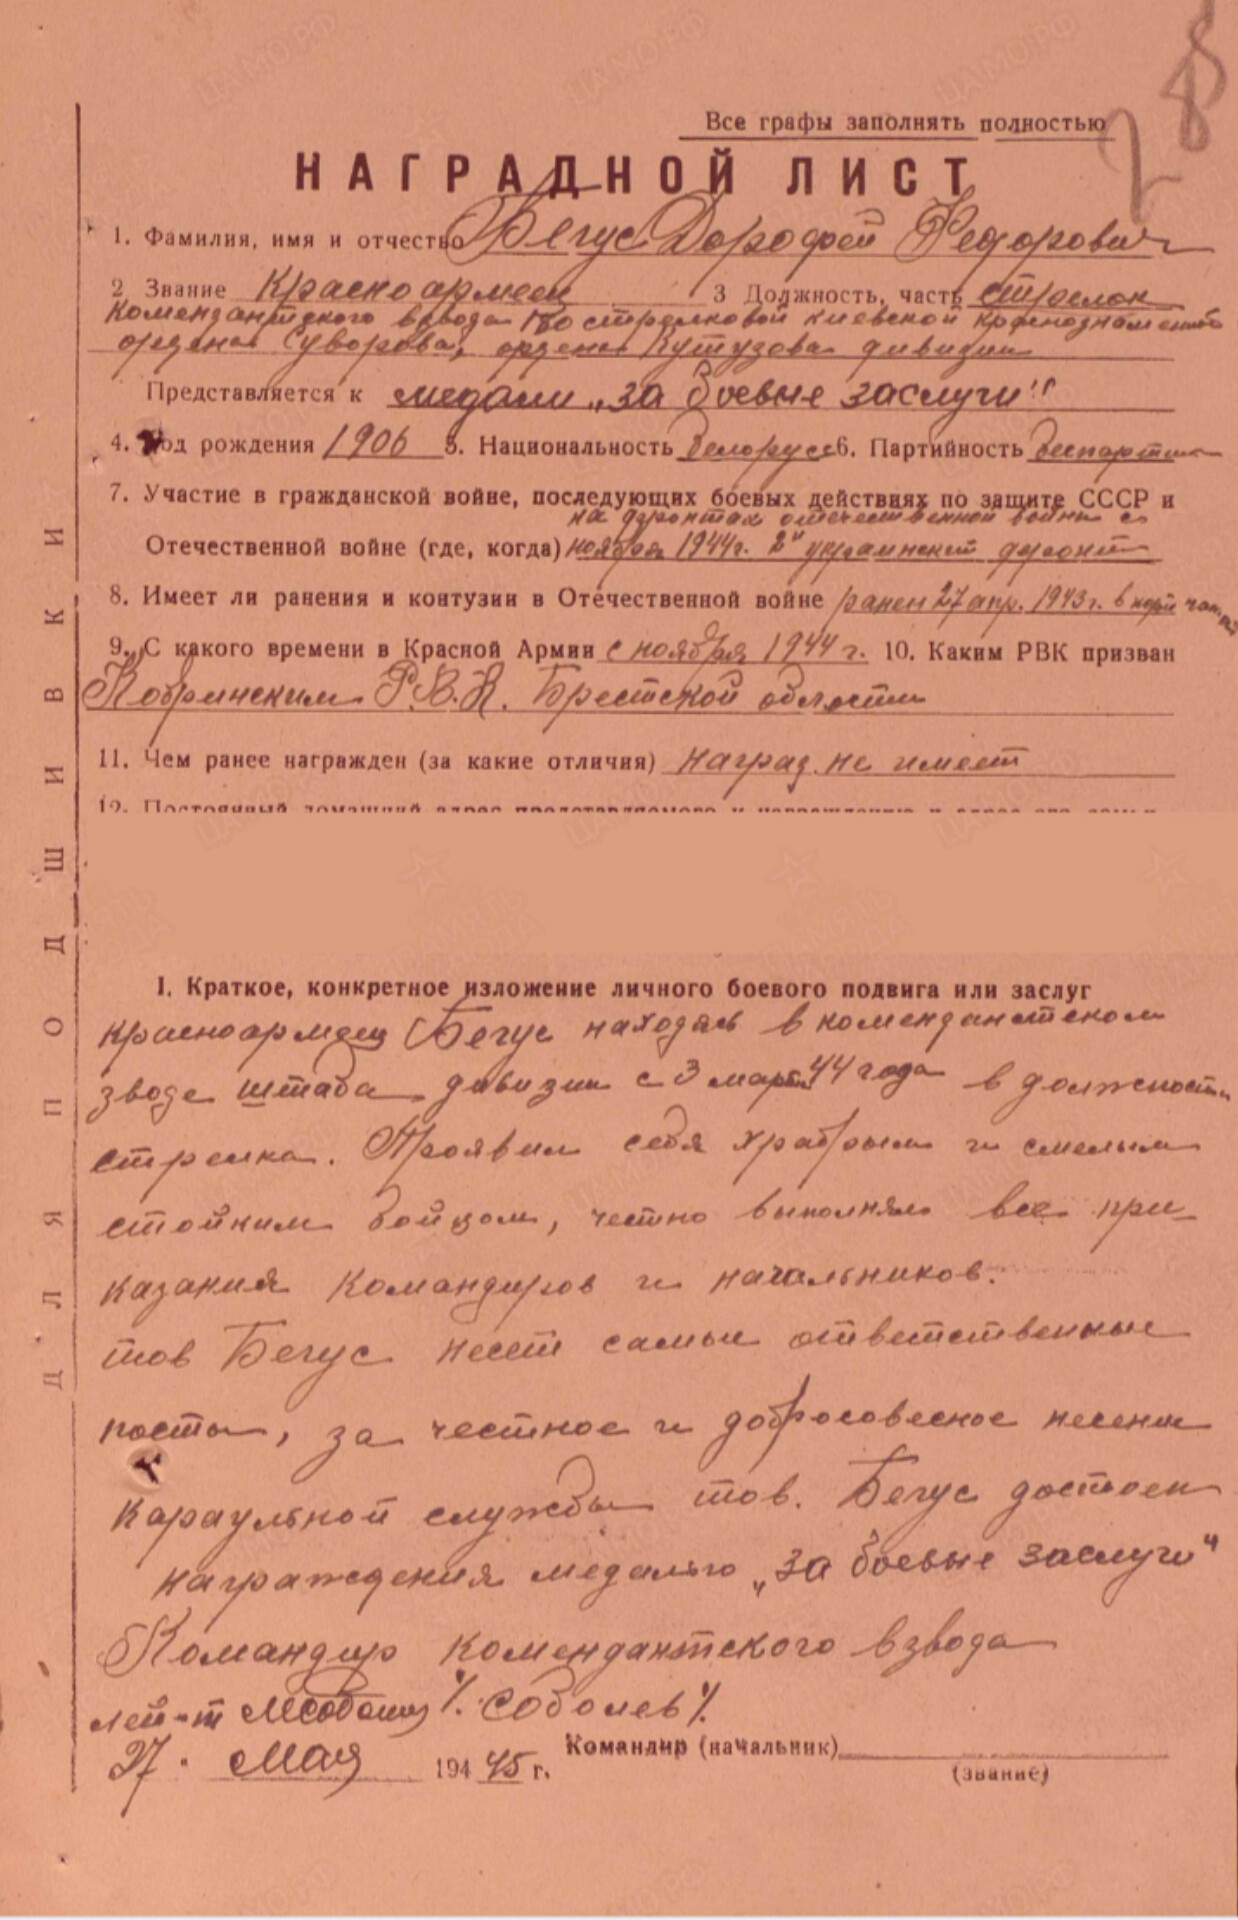 28
Все графы заполнять полностью
НАГРАДНОЙ ЛИСТ
1. Фамилия, имя и отчество Бегус Дорофей Федорович
2 Звание Красноармеец 3 Должность, часть стрелок
комендантского взвода 180 стрелковой киевской краснознаменной
ордена Суворова, ордена Кутузова дивизии
Представляется к медали „за боевые заслуги"
4. Год рождения 1906 5. Национальность белорус 6. Партийность беспартийн
7. Участие в гражданской войне, последующих боевых действиях по защите СССР и
на фронтах отечественной войны с
Отечественной войне (где, когда) ноября 1944г. 2й украинский фронт
8. Имеет ли ранения и контузии в Отечественной войне ранен 27 апр. 1943г. в
9. С какого времени в Красной Армии с ноября 1944 г. 10. Каким РВК призван
Кобринским Р.В.К. Брестской области
11. Чем ранее награжден (за какие отличия) наград не имеет
12. Постоянный домашний адрес представляемого к награждению и адрес его семьи
I. Краткое, конкретное изложение личного боевого подвига или заслуг
красноармеец Бегус находясь в комендантском
зводе штаба дивизии с 3 марта 44 года в должности
стрелка. Проявил себя храбрым и смелым
стойким бойцом, честно выполнял все при-
казания командиров и начальников.
тов Бегус несет самые ответственные
посты, за честное и добросовесное несение
караульной службы тов. Бегус достоен
награждения медалью „за боевые заслуги"
Командир комендантского взвода
лей-т /. Соболев /.
27. Мая 1945 г. Командир (начальник)
(звание)
ДЛЯ ПОДШИВКИ